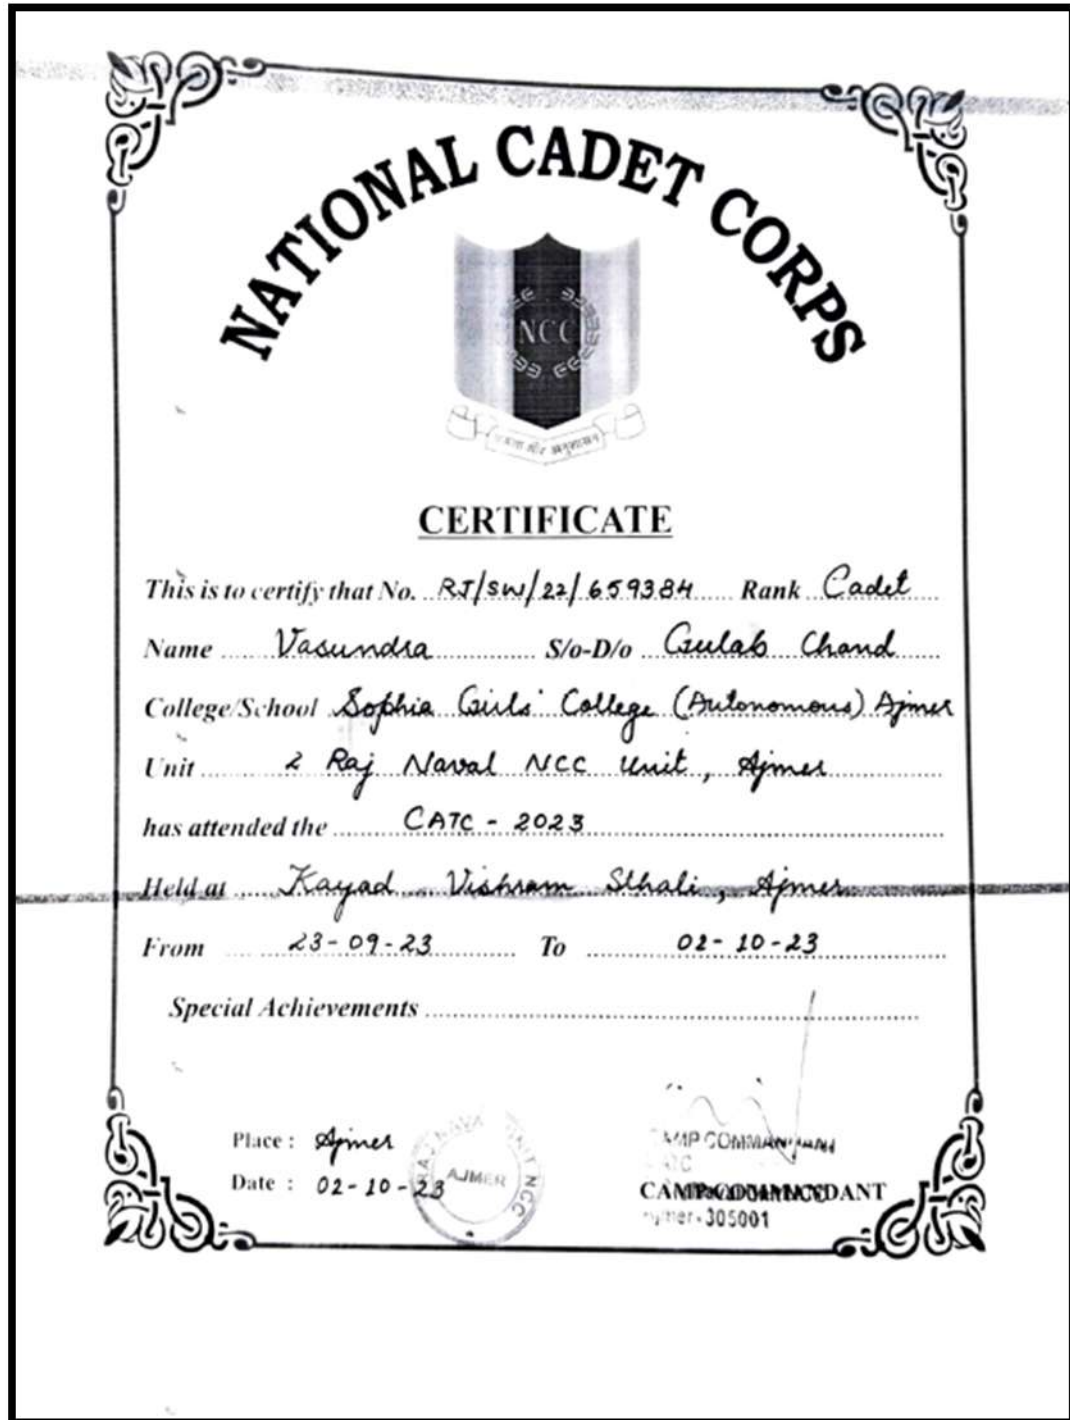 NATIONAL CADET CORPS
NCC
एकता और अनुशासन
CERTIFICATE
This is to certify that No. RJ/SW/22/659384 Rank Cadet
Name Vasundra S/o-D/o Gulab Chand
College/School Sophia Girls' College (Autonomous) Ajmer
Unit 2 Raj Naval NCC Unit, Ajmer
has attended the CATC - 2023
Held at Kayad Vishram Sthali, Ajmer
From 23-09-23 To 02-10-23
Special Achievements
Place : Ajmer
Date : 02-10-23
RAJ NAVAL UNIT NCC
AJMER
CAMP COMMANDANT
CATC
CAMP COMMANDANT
Ajmer-305001